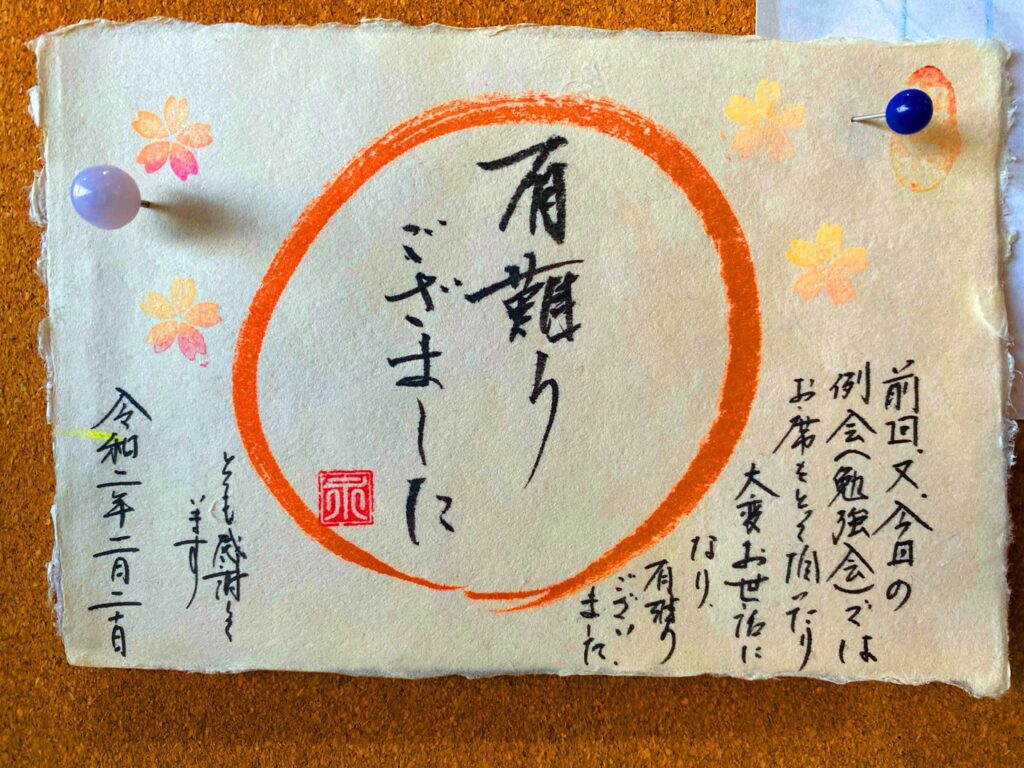 前回、又、今回の
例会(勉強会)では
お席をとって頂いたり
大変お世話に
なり、
有難う
ござい
ました、
有難う
ござました
とても感謝して
います
令和二年二月二十日